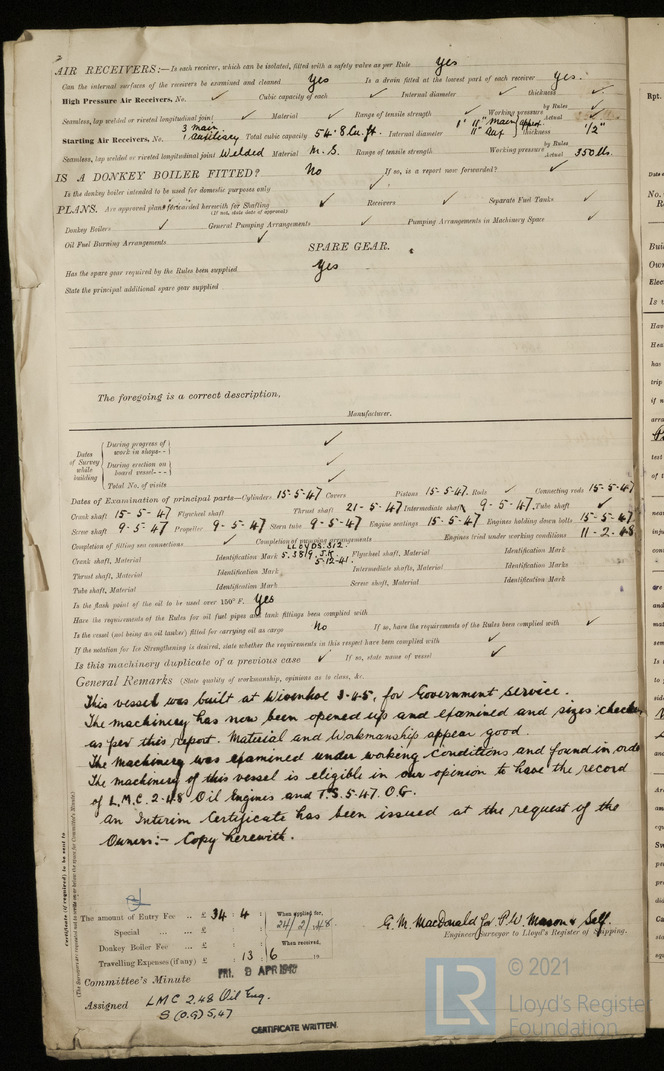 AIR RECEIVERS:—Is each receiver, which can be isolated, fitted with a safety valve as per Rule Yes
Can the internal surfaces of the receivers be examined and cleaned Yes Is a drain fitted at the lowest part of each receiver Yes.
High Pressure Air Receivers, No. ✓ Cubic capacity of each ✓ Internal diameter ✓ thickness ✓
Seamless, lap welded or riveted longitudinal joint ✓ Material ✓ Range of tensile strength ✓ Working pressure by Rules ✓ Actual
Starting Air Receivers, No. 3 main 1 auxiliary Total cubic capacity 54.8 cu.ft. Internal diameter 1' 11" Main 11" Aux thickness 1/2"
Seamless, lap welded or riveted longitudinal joint Welded Material M.S. Range of tensile strength Working pressure by Rules Actual 350 lbs.
IS A DONKEY BOILER FITTED? No If so, is a report now forwarded? ✓
Is the donkey boiler intended to be used for domestic purposes only ✓
PLANS. Are approved plans forwarded herewith for Shafting ✓ Receivers ✓ Separate Fuel Tanks ✓
(If not, state date of approval)
Donkey Boilers ✓ General Pumping Arrangements ✓ Pumping Arrangements in Machinery Space ✓
Oil Fuel Burning Arrangements ✓
SPARE GEAR.
Has the spare gear required by the Rules been supplied Yes
State the principal additional spare gear supplied
The foregoing is a correct description,
Manufacturer.
Dates of Survey while building
During progress of work in shops - - ✓
During erection on board vessel - - - ✓
Total No. of visits ✓
Dates of Examination of principal parts—Cylinders 15-5-47 Covers Pistons 15-5-47. Rods ✓ Connecting rods 15-5-47
Crank shaft 15-5-47 Flywheel shaft Thrust shaft 21-5-47 Intermediate shaft 9-5-47. Tube shaft ✓
Screw shaft 9-5-47 Propeller 9-5-47 Stern tube 9-5-47 Engine seatings 15-5-47. Engines holding down bolts 15-5-47
Completion of fitting sea connections ✓ Completion of pumping arrangements Engines tried under working conditions 11-2-48
Crank shaft, Material Identification Mark LLOYDS. 312. 5-12-41. Flywheel shaft, Material Identification Mark
Thrust shaft, Material Identification Mark Intermediate shafts, Material Identification Marks
Tube shaft, Material Identification Mark Screw shaft, Material Identification Mark
Is the flash point of the oil to be used over 150° F. Yes
Have the requirements of the Rules for oil fuel pipes and tank fittings been complied with
Is the vessel (not being an oil tanker) fitted for carrying oil as cargo No If so, have the requirements of the Rules been complied with ✓
If the notation for Ice Strengthening is desired, state whether the requirements in this respect have been complied with ✓
Is this machinery duplicate of a previous case ✓ If so, state name of vessel ✓
General Remarks (State quality of workmanship, opinions as to class, &c.
This vessel was built at Wivenhoe 3-4-5, for Government Service.
The machinery has now been opened up and examined and sizes checked
as per this report. Material and Workmanship appear good.
The machinery was examined under working conditions and found in order
The machinery of this vessel is eligible in our opinion to have the record
of L.M.C. 2-48 Oil Engines and T.S. 5-47. O.G.
An Interim Certificate has been issued at the request of the
Owners:- Copy herewith.
Certificate (if required) to be sent to
(The Surveyors are requested not to write on or below the space for Committee's Minute.)
The amount of Entry Fee .. £ 34 : 4 : When applied for, 24/2/48
Special ... ... £ : :
Donkey Boiler Fee ... £ : : When received,
Travelling Expenses (if any) £ : 13 : 6 19
G. M. MacDonald for P.W. Mason & Self.
Engineer Surveyor to Lloyd's Register of Shipping.
Committee's Minute FRI. 9 APR 1948
Assigned LMC 2.48 Oil Eng.
S (O.G) 5,47
CERTIFICATE WRITTEN.
LR © 2021
Lloyd's Register
Foundation
Rpt.